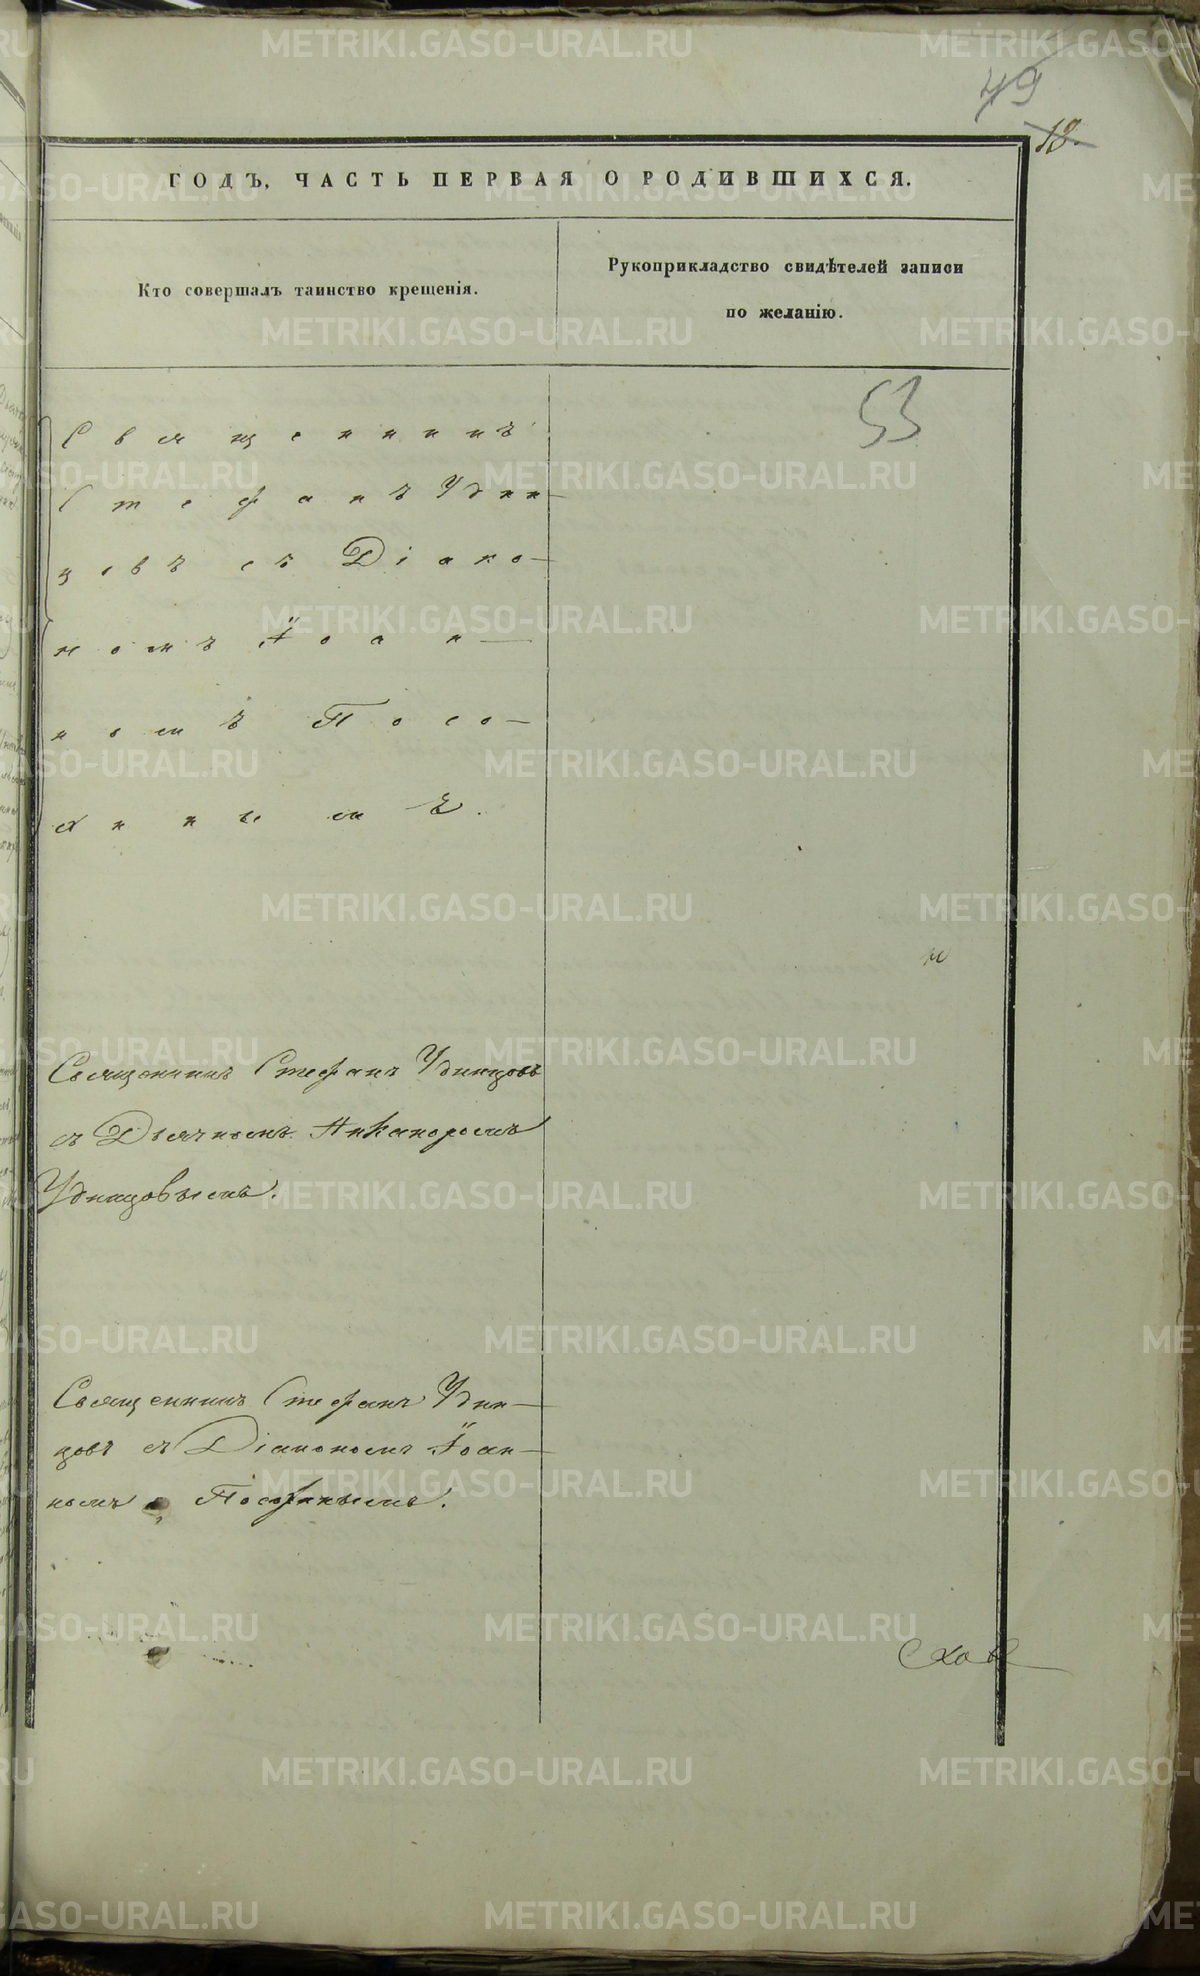 49
18.
ГОДЪ, ЧАСТЬ ПЕРВАЯ О РОДИВШИХСЯ.
Кто совершалъ таинство крещенія.
Рукоприкладство свидѣтелей записи
по желанію.
53
Священникъ
Стефанъ Удин-
цовъ съ Діако-
номъ Іоан-
номъ Посо-
хинымъ.
Священникъ Стефанъ Удинцовъ
съ Дьячкомъ Никаноромъ
Удинцовымъ.
Священникъ Стефанъ Удин-
цовъ съ Діакономъ Іоан-
номъ Посохинымъ.
METRIKI.GASO-URAL.RU